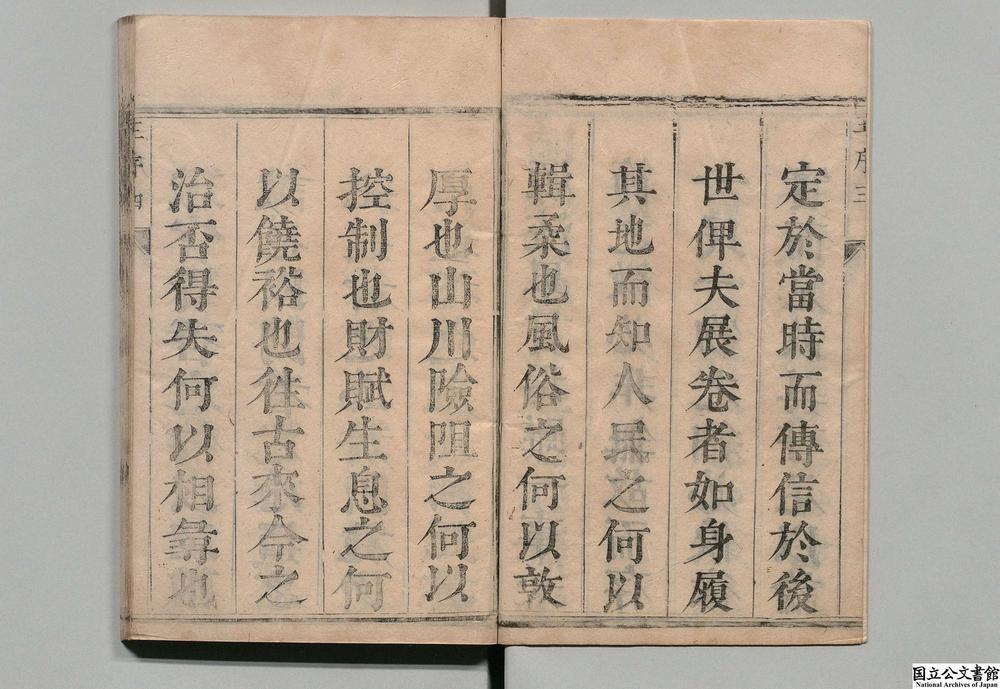 定於當時而傳信於後
世俾夫展卷者如身履
其地而知人民之何以
輯柔也風俗之何以敦
厚也山川險阻之何以
控制也財賦生息之何
以饒裕也往古來今之
治否得失何以相彛也
序三
序四
国立公文書館
National Archives of Japan